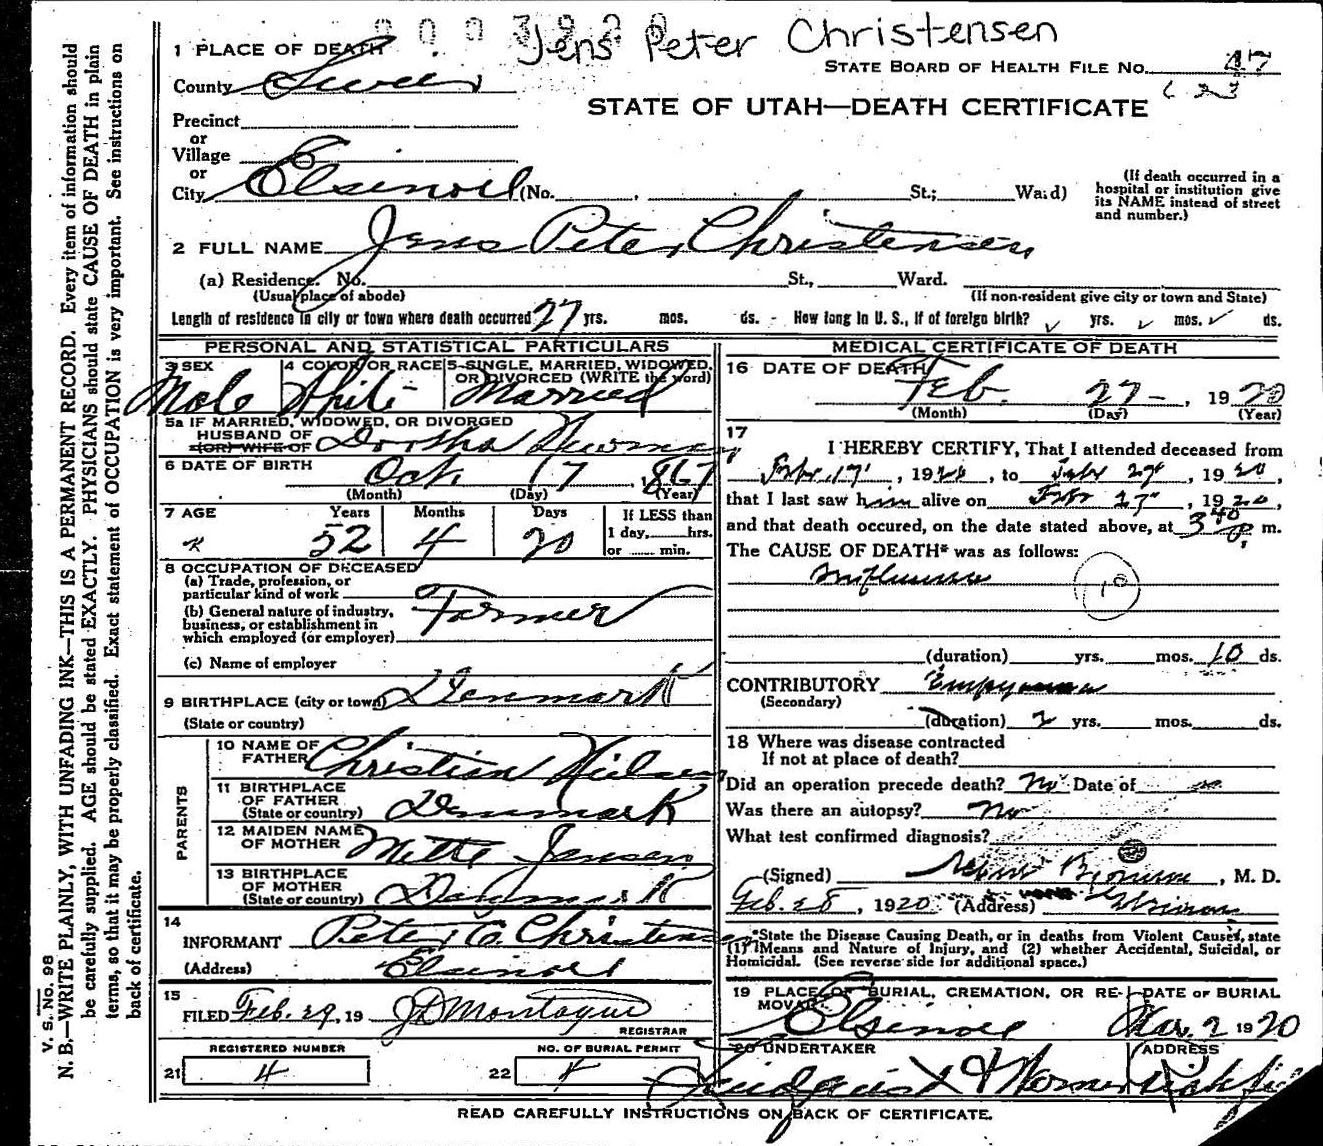 Jens Peter Christensen
1 PLACE OF DEATH
STATE BOARD OF HEALTH FILE No. 47
County Sevier
STATE OF UTAH—DEATH CERTIFICATE
Precinct
or
Village
or
City Elsinore (No. , St.; Ward)
(If death occurred in a
hospital or institution give
its NAME instead of street
and number.)
2 FULL NAME Jens Peter Christensen
(a) Residence. No. St., Ward.
(Usual place of abode)
(If non-resident give city or town and State)
Length of residence in city or town where death occurred 27 yrs. mos. ds. - How long in U. S., if of foreign birth? ✓ yrs. ✓ mos. ✓ ds.
PERSONAL AND STATISTICAL PARTICULARS
3 SEX
Male
4 COLOR OR RACE
White
5 SINGLE, MARRIED, WIDOWED,
OR DIVORCED (WRITE the word)
Married
5a IF MARRIED, WIDOWED, OR DIVORCED
HUSBAND OF
(OR) WIFE OF Dortha Newman
6 DATE OF BIRTH Oct. 17, 1867
(Month) (Day) (Year)
7 AGE Years Months Days
52 4 20
If LESS than
1 day, hrs.
or min.
8 OCCUPATION OF DECEASED
(a) Trade, profession, or
particular kind of work
Farmer
(b) General nature of industry,
business, or establishment in
which employed (or employer)
(c) Name of employer
9 BIRTHPLACE (city or town) Denmark
(State or country)
PARENTS
10 NAME OF
FATHER Christian Nielsen
11 BIRTHPLACE
OF FATHER
(State or country) Denmark
12 MAIDEN NAME
OF MOTHER Mette Jensen
13 BIRTHPLACE
OF MOTHER
(State or country) Denmark
14
INFORMANT Peter C. Christensen
(Address) Elsinore
15
FILED Feb. 29, 19 J D Montague
REGISTRAR
REGISTERED NUMBER
21 4
NO. OF BURIAL PERMIT
22 4
MEDICAL CERTIFICATE OF DEATH
16 DATE OF DEATH
Feb. 27 -, 1920
(Month) (Day) (Year)
17
I HEREBY CERTIFY, That I attended deceased from
Febr 17, 1920, to Febr 27, 1920,
that I last saw him alive on Febr 27, 1920,
and that death occured, on the date stated above, at 3 40 p m.
The CAUSE OF DEATH* was as follows:
Influenza
10
(duration) yrs. mos. 10 ds.
CONTRIBUTORY Empyema
(Secondary)
(duration) 2 yrs. mos. ds.
18 Where was disease contracted
If not at place of death?
Did an operation precede death? No Date of no
Was there an autopsy? No
What test confirmed diagnosis?
(Signed) , M. D.
Feb. 28, 1920 (Address) Elsinore
*State the Disease Causing Death, or in deaths from Violent Causes, state
(1) Means and Nature of Injury, and (2) whether Accidental, Suicidal, or
Homicidal. (See reverse side for additional space.)
19 PLACE OF BURIAL, CREMATION, OR RE-
MOVAL
Elsinore
DATE OF BURIAL
Mar. 2 1920
20 UNDERTAKER
ADDRESS
Lindquist & Richfield
READ CAREFULLY INSTRUCTIONS ON BACK OF CERTIFICATE.
V. S. No. 98
N. B.—WRITE PLAINLY, WITH UNFADING INK—THIS IS A PERMANENT RECORD. Every item of information should
be carefully supplied. AGE should be stated EXACTLY. PHYSICIANS should state CAUSE OF DEATH in plain
terms, so that it may be properly classified. Exact statement of OCCUPATION is very important. See instructions on
back of certificate.